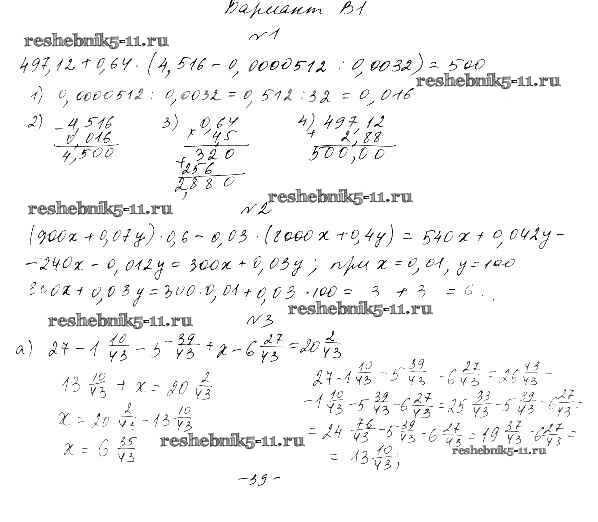 Вариант В1
reshebnik5-11.ru
№1
497,12 + 0,64 · (4,516 - 0,0000512 : 0,0032) = 500
reshebnik5-11.ru
1) 0,0000512 : 0,0032 = 0,512 : 32 = 0,016
2) - 4,516 3) × 0,64 4) + 497,12
0,016 4,5 2,88
4,500 + 320 500,00
256
2,880
reshebnik5-11.ru
reshebnik5-11.ru
№2
(900x + 0,07y) · 0,6 - 0,03 · (8000x + 0,4y) = 540x + 0,042y -
- 240x - 0,012y = 300x + 0,03y; при x = 0,01, y = 100
300x + 0,03y = 300·0,01 + 0,03·100 = 3 + 3 = 6.
reshebnik5-11.ru
reshebnik5-11.ru
№3
а) 27 - 1 10/43 - 5 39/43 + x - 6 27/43 = 20 2/43
13 10/43 + x = 20 2/43
x = 20 2/43 - 13 10/43
x = 6 35/43
27 - 1 10/43 - 5 39/43 - 6 27/43 = 26 43/43 -
- 1 10/43 - 5 39/43 - 6 27/43 = 25 33/43 - 5 39/43 - 6 27/43 =
= 24 76/43 - 5 39/43 - 6 27/43 = 19 37/43 - 6 27/43 =
= 13 10/43;
reshebnik5-11.ru
reshebnik5-11.ru
- 39 -